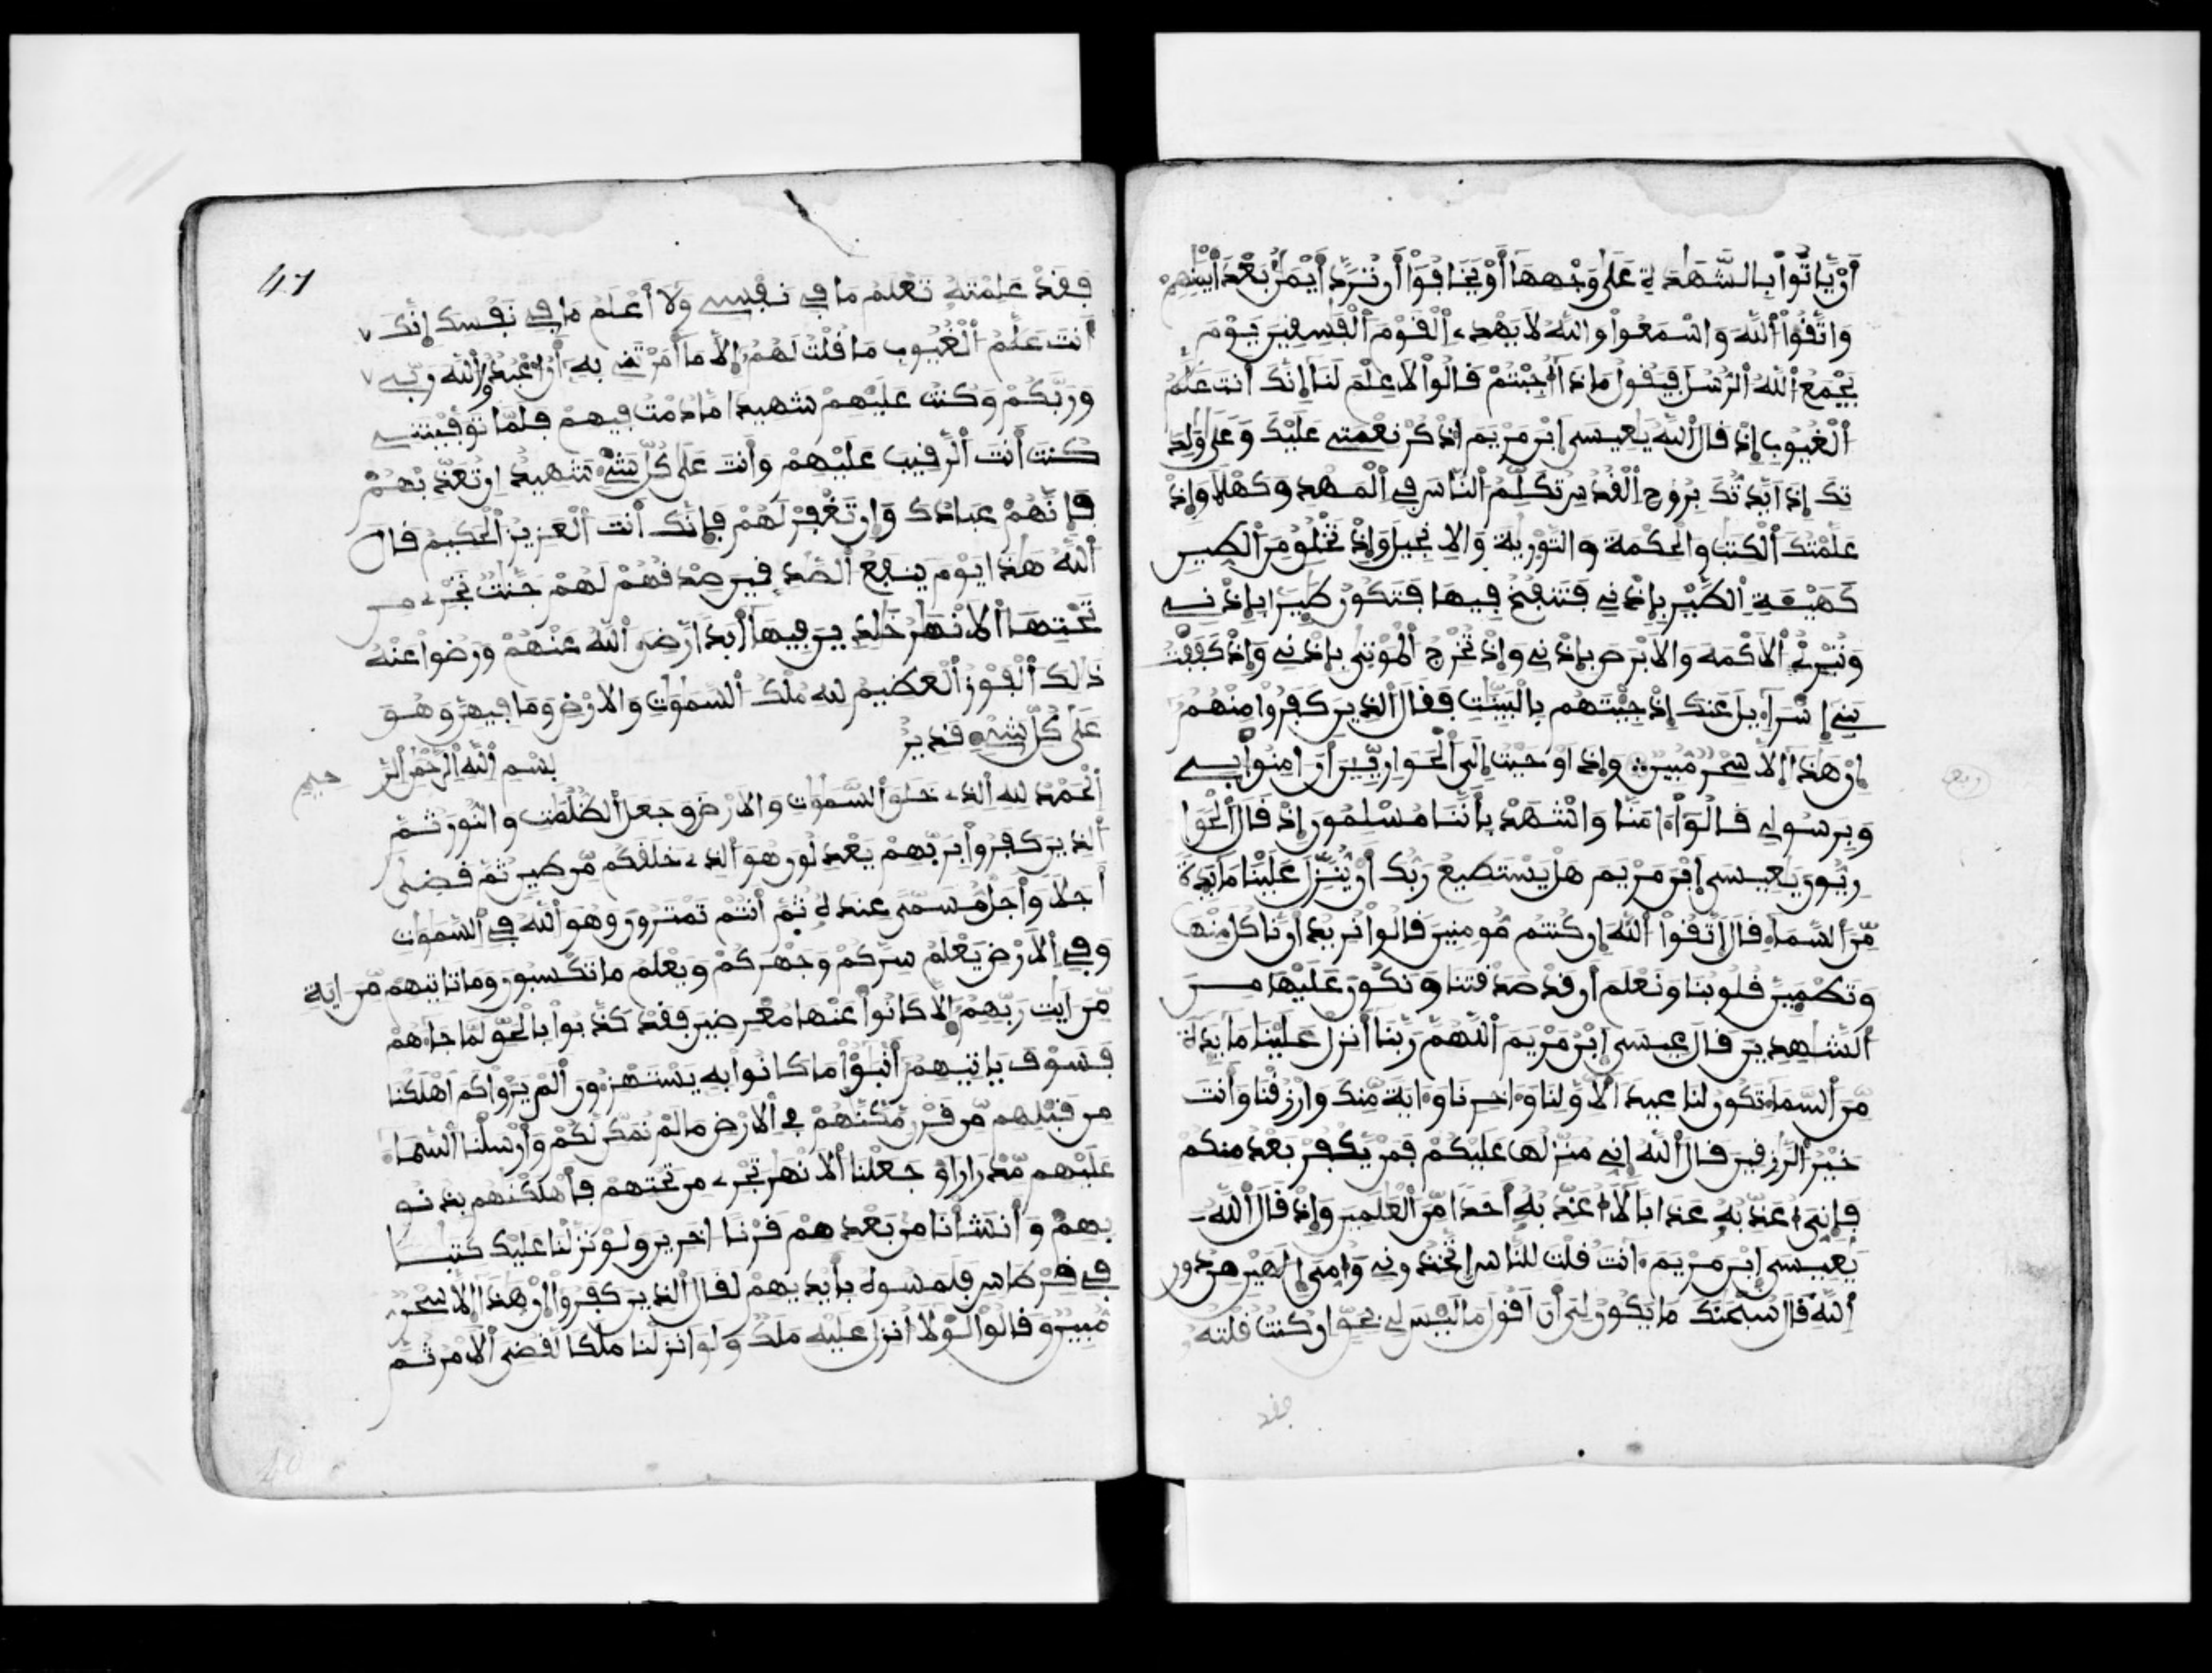 أَوْ يَّاتُوا بِالشَّهَٰدَةِ عَلَىٰ وَجْهِهَا أَوْ يَخَافُوا أَن تُرَدَّ أَيْمَٰنٌ بَعْدَ أَيْمَٰنِهِمْ
وَاتَّقُوا اللَّهَ وَاسْمَعُوا وَاللَّهُ لَا يَهْدِي الْقَوْمَ الْفَٰسِقِينَ يَوْمَ
يَجْمَعُ اللَّهُ الرُّسُلَ فَيَقُولُ مَاذَا أُجِبْتُمْ قَالُوا لَا عِلْمَ لَنَا إِنَّكَ أَنتَ عَلَّٰمُ
الْغُيُوبِ إِذْ قَالَ اللَّهُ يَٰعِيسَى ابْنَ مَرْيَمَ اذْكُرْ نِعْمَتِي عَلَيْكَ وَعَلَىٰ وَٰلِدَ
تِكَ إِذْ أَيَّدتُّكَ بِرُوحِ الْقُدُسِ تُكَلِّمُ النَّاسَ فِي الْمَهْدِ وَكَهْلًا وَإِذْ
عَلَّمْتُكَ الْكِتَٰبَ وَالْحِكْمَةَ وَالتَّوْرَىٰةَ وَالْإِنجِيلَ وَإِذْ تَخْلُقُ مِنَ الطِّينِ
كَهَيْـَٔةِ الطَّيْرِ بِإِذْنِي فَتَنفُخُ فِيهَا فَتَكُونُ طَيْرًا بِإِذْنِي
وَتُبْرِئُ الْأَكْمَهَ وَالْأَبْرَصَ بِإِذْنِي وَإِذْ تُخْرِجُ الْمَوْتَىٰ بِإِذْنِي وَإِذْ كَفَفْتُ
بَنِي إِسْرَآءِيلَ عَنكَ إِذْ جِئْتَهُم بِالْبَيِّنَٰتِ فَقَالَ الَّذِينَ كَفَرُوا مِنْهُمُ
إِنْ هَٰذَا إِلَّا سِحْرٌ مُّبِينٌ وَإِذْ أَوْحَيْتُ إِلَى الْحَوَارِيِّينَ أَنْ ءَامِنُوا بِي
وَبِرَسُولِي قَالُوا ءَامَنَّا وَاشْهَدْ بِأَنَّنَا مُسْلِمُونَ إِذْ قَالَ الْحَوَا
رِيُّونَ يَٰعِيسَى ابْنَ مَرْيَمَ هَلْ يَسْتَطِيعُ رَبُّكَ أَنْ يُّنَزِّلَ عَلَيْنَا مَآئِدَةً
مِّنَ السَّمَآءِ قَالَ اتَّقُوا اللَّهَ إِن كُنتُم مُّومِنِينَ قَالُوا نُرِيدُ أَن نَّاكُلَ مِنْهَا
وَتَطْمَئِنَّ قُلُوبُنَا وَنَعْلَمَ أَن قَدْ صَدَقْتَنَا وَنَكُونَ عَلَيْهَا مِنَ
الشَّٰهِدِينَ قَالَ عِيسَى ابْنُ مَرْيَمَ اللَّهُمَّ رَبَّنَا أَنزِلْ عَلَيْنَا مَآئِدَةً
مِّنَ السَّمَآءِ تَكُونُ لَنَا عِيدًا لِّأَوَّلِنَا وَءَاخِرِنَا وَءَايَةً مِّنكَ وَارْزُقْنَا وَأَنتَ
خَيْرُ الرَّٰزِقِينَ قَالَ اللَّهُ إِنِّي مُنَزِّلُهَا عَلَيْكُمْ فَمَنْ يَّكْفُرْ بَعْدُ مِنكُمْ
فَإِنِّيَ أُعَذِّبُهُ عَذَابًا لَّا أُعَذِّبُهُ أَحَدًا مِّنَ الْعَٰلَمِينَ وَإِذْ قَالَ اللَّهُ
يَٰعِيسَى ابْنَ مَرْيَمَ ءَأَنتَ قُلْتَ لِلنَّاسِ اتَّخِذُونِي وَأُمِّيَ إِلَٰهَيْنِ مِن دُونِ
اللَّهِ قَالَ سُبْحَٰنَكَ مَا يَكُونُ لِيَ أَنْ أَقُولَ مَا لَيْسَ لِي بِحَقٍّ إِن كُنتُ قُلْتُهُ
فقد
47
فَقَدْ عَلِمْتَهُ تَعْلَمُ مَا فِي نَفْسِي وَلَا أَعْلَمُ مَا فِي نَفْسِكَ إِنَّكَ
أَنتَ عَلَّٰمُ الْغُيُوبِ مَا قُلْتُ لَهُمْ إِلَّا مَا أَمَرْتَنِي بِهِ أَنُ اعْبُدُوا اللَّهَ رَبِّي
وَرَبَّكُمْ وَكُنتُ عَلَيْهِمْ شَهِيدًا مَّا دُمْتُ فِيهِمْ فَلَمَّا تَوَفَّيْتَنِي
كُنتَ أَنتَ الرَّقِيبَ عَلَيْهِمْ وَأَنتَ عَلَىٰ كُلِّ شَيْءٍ شَهِيدٌ إِن تُعَذِّبْهُمْ
فَإِنَّهُمْ عِبَادُكَ وَإِن تَغْفِرْ لَهُمْ فَإِنَّكَ أَنتَ الْعَزِيزُ الْحَكِيمُ قَالَ
اللَّهُ هَٰذَا يَوْمَ يَنفَعُ الصَّٰدِقِينَ صِدْقُهُمْ لَهُمْ جَنَّٰتٌ تَجْرِي مِن
تَحْتِهَا الْأَنْهَٰرُ خَٰلِدِينَ فِيهَا أَبَدًا رَّضِيَ اللَّهُ عَنْهُمْ وَرَضُوا عَنْهُ
ذَٰلِكَ الْفَوْزُ الْعَظِيمُ لِلَّهِ مُلْكُ السَّمَٰوَٰتِ وَالْأَرْضِ وَمَا فِيهِنَّ وَهُوَ
عَلَىٰ كُلِّ شَيْءٍ قَدِيرٌ
بِسْمِ اللَّهِ الرَّحْمَٰنِ الرَّحِيمِ
الْحَمْدُ لِلَّهِ الَّذِي خَلَقَ السَّمَٰوَٰتِ وَالْأَرْضَ وَجَعَلَ الظُّلُمَٰتِ وَالنُّورَ ثُمَّ
الَّذِينَ كَفَرُوا بِرَبِّهِمْ يَعْدِلُونَ هُوَ الَّذِي خَلَقَكُم مِّن طِينٍ ثُمَّ قَضَىٰ
أَجَلًا وَأَجَلٌ مُّسَمًّى عِندَهُ ثُمَّ أَنتُمْ تَمْتَرُونَ وَهُوَ اللَّهُ فِي السَّمَٰوَٰتِ
وَفِي الْأَرْضِ يَعْلَمُ سِرَّكُمْ وَجَهْرَكُمْ وَيَعْلَمُ مَا تَكْسِبُونَ وَمَا تَاتِيهِم مِّنْ ءَايَةٍ
مِّنْ ءَايَٰتِ رَبِّهِمْ إِلَّا كَانُوا عَنْهَا مُعْرِضِينَ فَقَدْ كَذَّبُوا بِالْحَقِّ لَمَّا جَآءَهُمْ
فَسَوْفَ يَاتِيهِمْ أَنۢبَٰٓؤُا مَا كَانُوا بِهِ يَسْتَهْزِءُونَ أَلَمْ يَرَوْا كَمْ أَهْلَكْنَا
مِن قَبْلِهِم مِّن قَرْنٍ مَّكَّنَّٰهُمْ فِي الْأَرْضِ مَا لَمْ نُمَكِّن لَّكُمْ وَأَرْسَلْنَا السَّمَآءَ
عَلَيْهِم مِّدْرَارًا وَجَعَلْنَا الْأَنْهَٰرَ تَجْرِي مِن تَحْتِهِمْ فَأَهْلَكْنَٰهُم بِذُنُو
بِهِمْ وَأَنشَأْنَا مِن بَعْدِهِمْ قَرْنًا ءَاخَرِينَ وَلَوْ نَزَّلْنَا عَلَيْكَ كِتَٰبًا
فِي قِرْطَاسٍ فَلَمَسُوهُ بِأَيْدِيهِمْ لَقَالَ الَّذِينَ كَفَرُوا إِنْ هَٰذَا إِلَّا سِحْرٌ
مُّبِينٌ وَقَالُوا لَوْلَا أُنزِلَ عَلَيْهِ مَلَكٌ وَلَوْ أَنزَلْنَا مَلَكًا لَّقُضِيَ الْأَمْرُ ثُمَّ